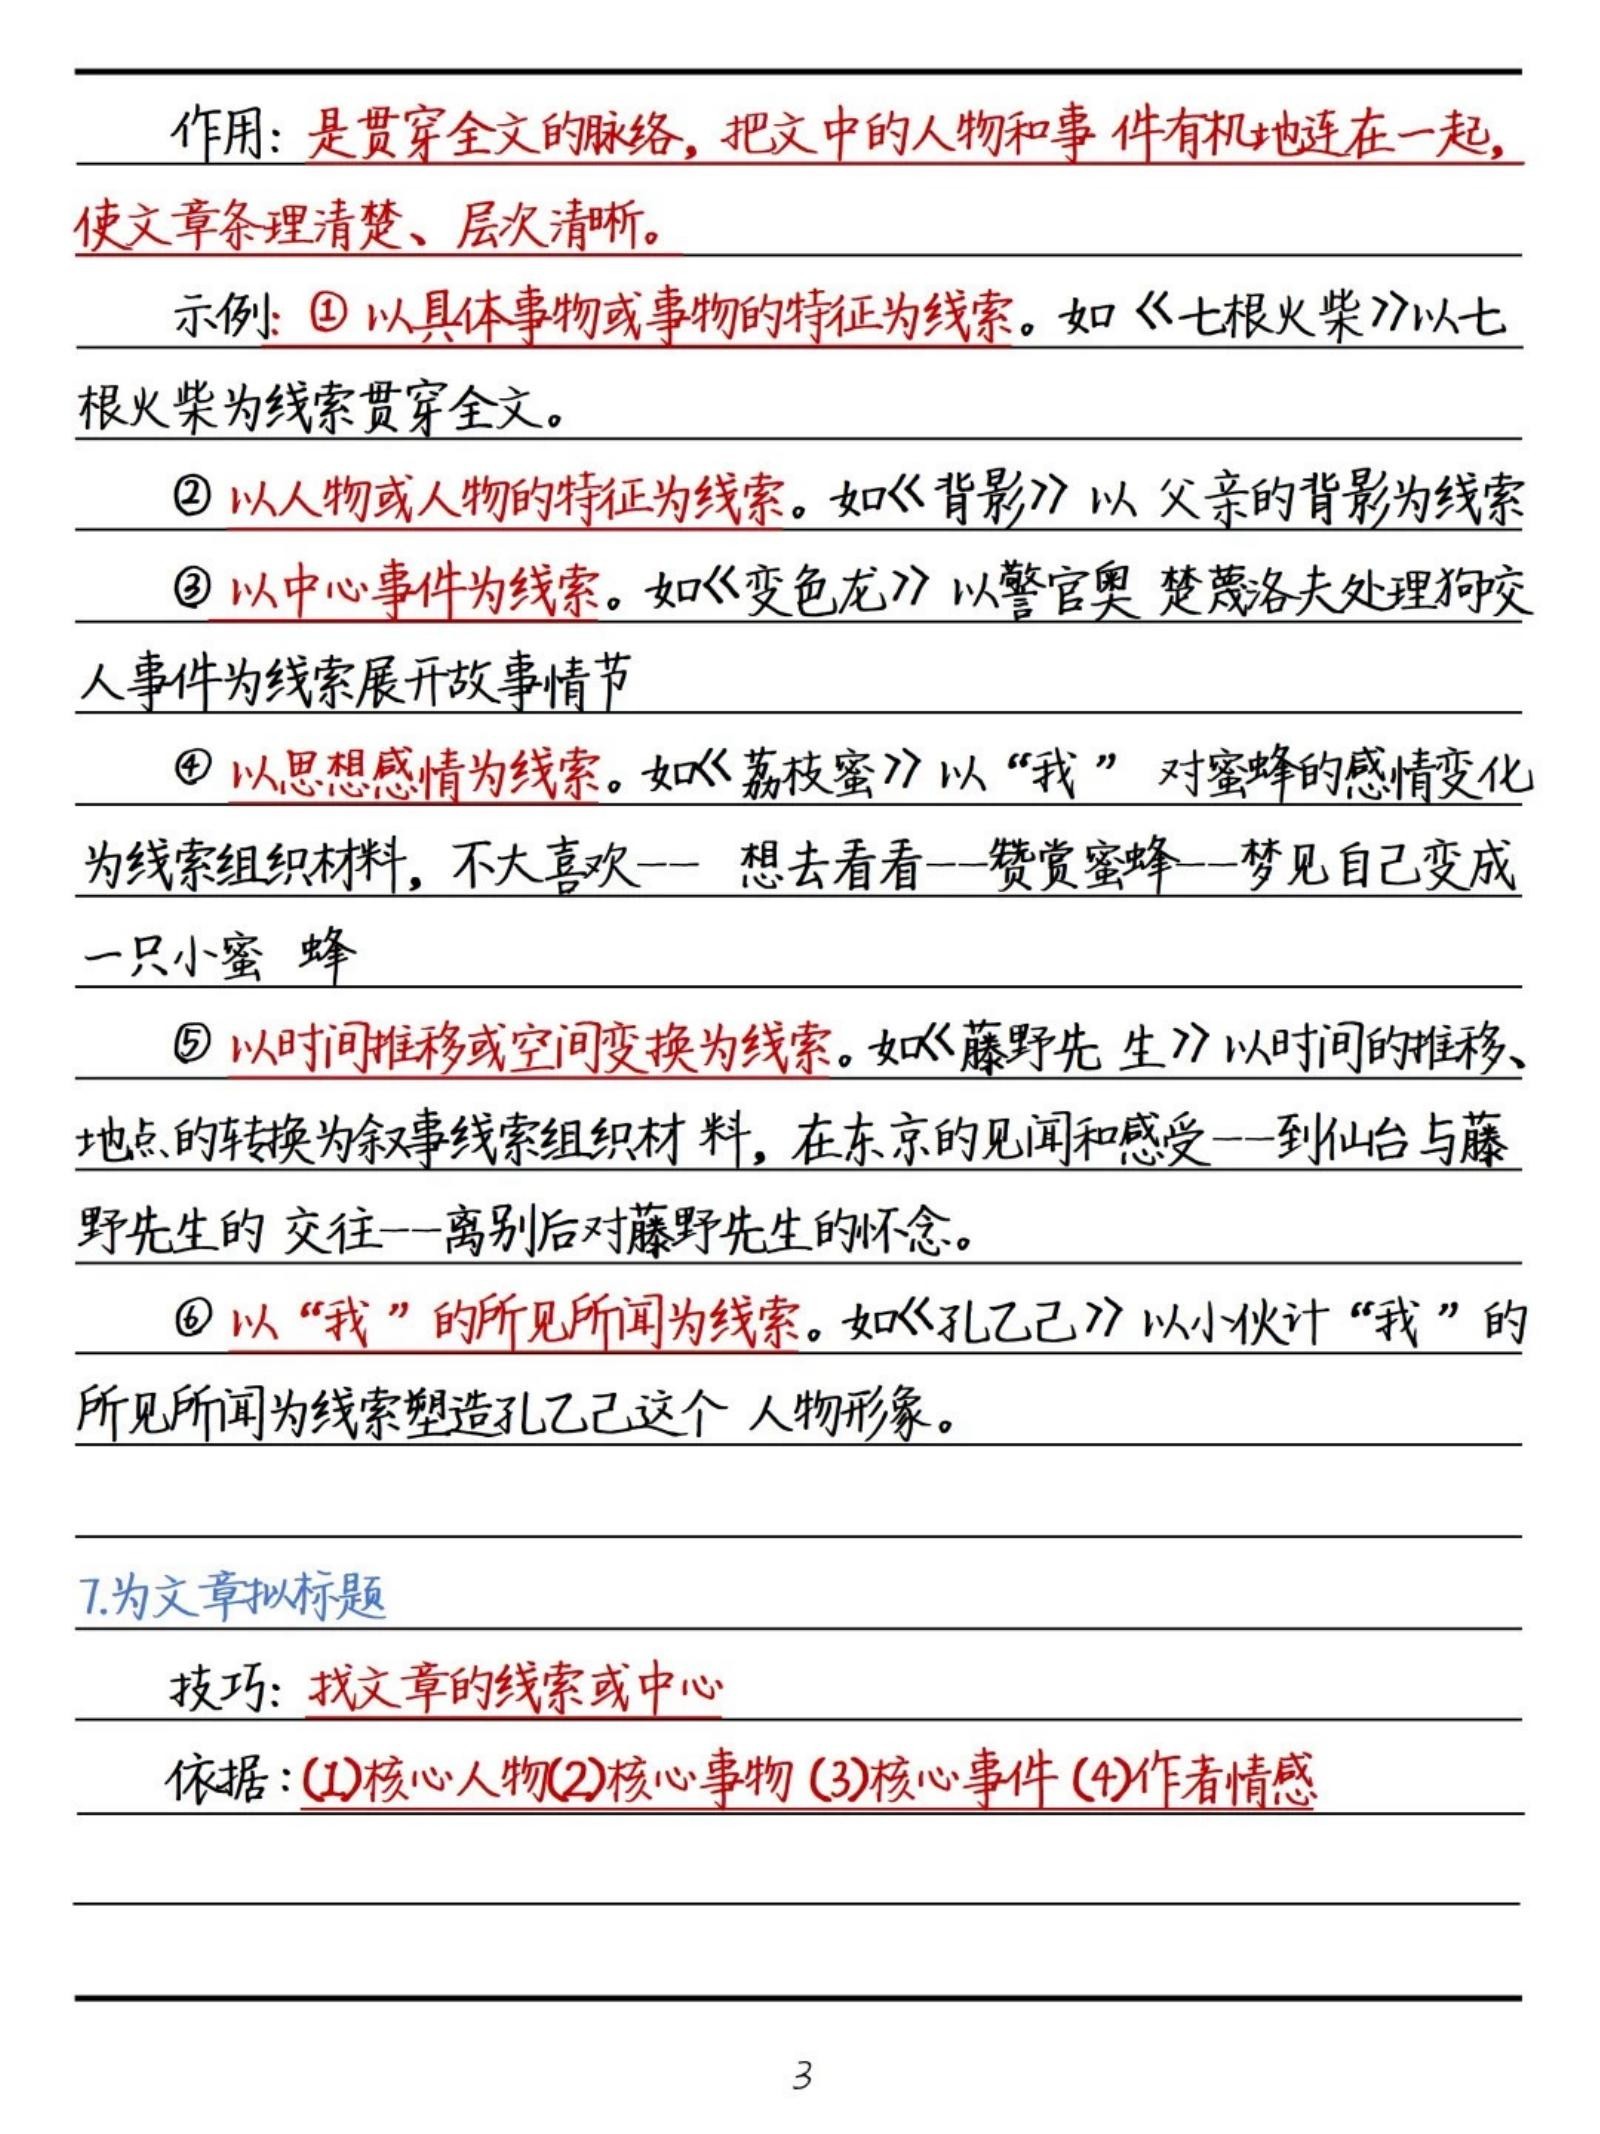 作用：是贯穿全文的脉络，把文中的人物和事 件有机地连在一起，
使文章条理清楚、层次清晰。
示例：① 以具体事物或事物的特征为线索。如《七根火柴》以七
根火柴为线索贯穿全文。
② 以人物或人物的特征为线索。如《背影》以 父亲的背影为线索
③ 以中心事件为线索。如《变色龙》以警官奥 楚蔑洛夫处理狗交
人事件为线索展开故事情节
④ 以思想感情为线索。如《荔枝蜜》以“我” 对蜜蜂的感情变化
为线索组织材料，不大喜欢—— 想去看看——赞赏蜜蜂——梦见自己变成
一只小蜜 蜂
⑤ 以时间推移或空间变换为线索。如《藤野先 生》以时间的推移、
地点的转换为叙事线索组织材 料，在东京的见闻和感受——到仙台与藤
野先生的 交往——离别后对藤野先生的怀念。
⑥ 以“我”的所见所闻为线索。如《孔乙己》以小伙计“我”的
所见所闻为线索塑造孔乙己这个 人物形象。
7.为文章拟标题
技巧：找文章的线索或中心
依据：(1)核心人物(2)核心事物 (3)核心事件 (4)作者情感
3